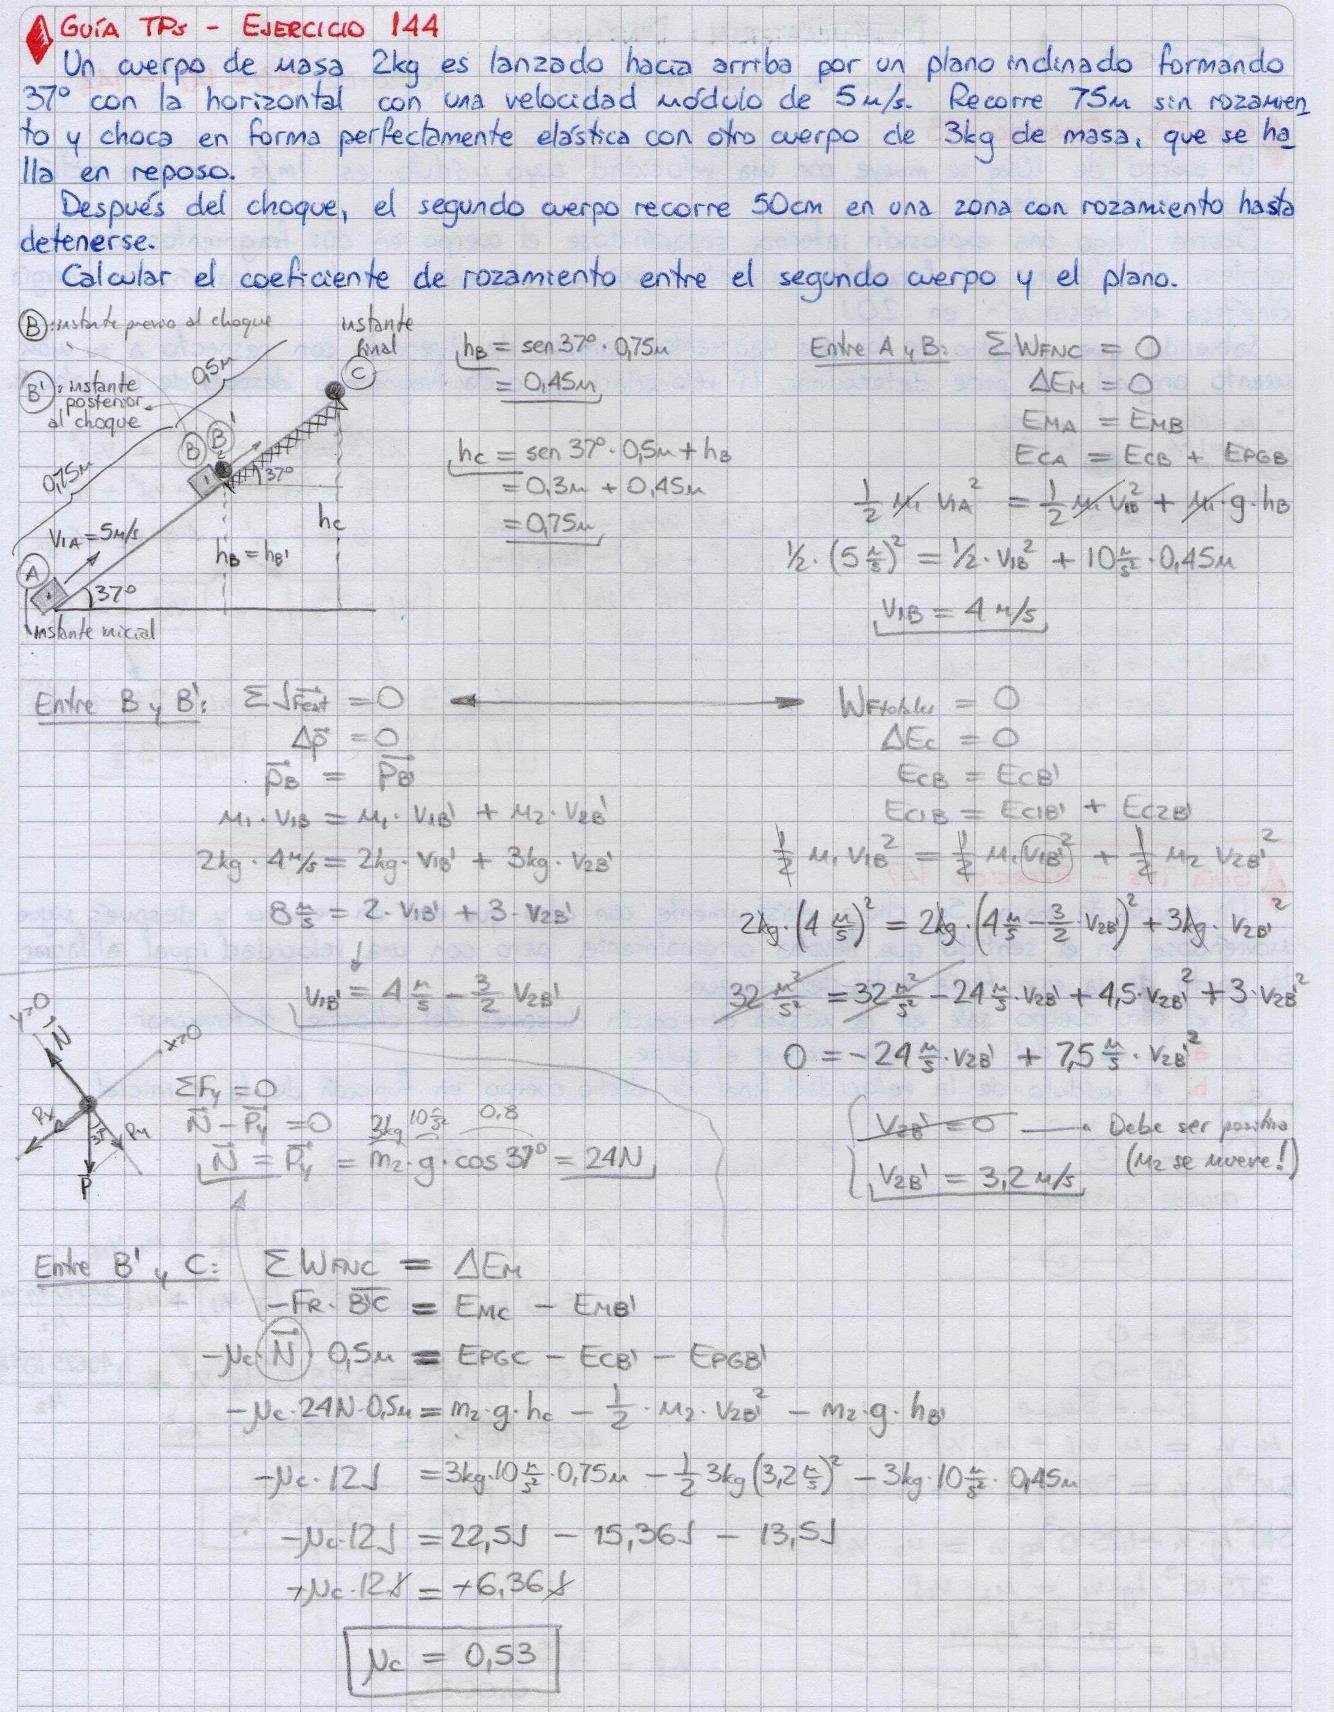 GUÍA TPs - EJERCICIO 144
Un cuerpo de masa 2kg es lanzado hacia arriba por un plano inclinado formando
37° con la horizontal con una velocidad módulo de 5m/s. Recorre 75m sin rozamien
to y choca en forma perfectamente elástica con otro cuerpo de 3kg de masa, que se ha
lla en reposo.
Después del choque, el segundo cuerpo recorre 50cm en una zona con rozamiento hasta
detenerse.
Calcular el coeficiente de rozamiento entre el segundo cuerpo y el plano.
B: instante previo al choque
B': instante posterior al choque
instante final
C
0,5m
0,75m
B B'
1
2
37°
V1A = 5m/s
hB = hB'
hC
A
37°
instante inicial
hB = sen37°·0,75m
= 0,45m
hC = sen37°·0,5m + hB
= 0,3m + 0,45m
= 0,75m
Entre A y B: ΣWFNC = 0
ΔEM = 0
EMA = EMB
ECA = ECB + EPGB
1/2 m1 V1A² = 1/2 m1 V1B² + m1·g·hB
1/2·(5 m/s)² = 1/2·V1B² + 10 m/s²·0,45m
V1B = 4 m/s
Entre B y B': ΣJFext = 0
Δp = 0
pB = pB'
m1·V1B = m1·V1B' + m2·V2B'
2kg·4m/s = 2kg·V1B' + 3kg·V2B'
8 m/s = 2·V1B' + 3·V2B'
V1B' = 4 m/s - 3/2 V2B'
WFtotales = 0
ΔEC = 0
ECB = ECB'
EC1B = EC1B' + EC2B'
1/2 m1 V1B² = 1/2 m1 V1B'² + 1/2 m2 V2B'²
2kg·(4 m/s)² = 2kg·(4 m/s - 3/2·V2B')² + 3kg·V2B'²
32 m²/s² = 32 m²/s² - 24 m/s·V2B' + 4,5·V2B'² + 3·V2B'²
0 = -24 m/s·V2B' + 7,5 m/s·V2B'²
V2B' = 0 Debe ser positiva
V2B' = 3,2 m/s (m2 se mueve!)
y>0
N
x>0
Px
37°
Py
P
ΣFy = 0
N - Py = 0
3kg 10 m/s² 0,8
N = Py = m2·g·cos37° = 24N
Entre B' y C: ΣWFNC = ΔEM
-FR·B'C = EMC - EMB'
-μc·N·0,5m = EPGC - ECB' - EPGB'
-μc·24N·0,5m = m2·g·hC - 1/2·m2·V2B'² - m2·g·hB'
-μc·12J = 3kg·10 m/s²·0,75m - 1/2 3kg (3,2 m/s)² - 3kg·10 m/s²·0,45m
-μc·12J = 22,5J - 15,36J - 13,5J
+μc·12J = +6,36J
μc = 0,53